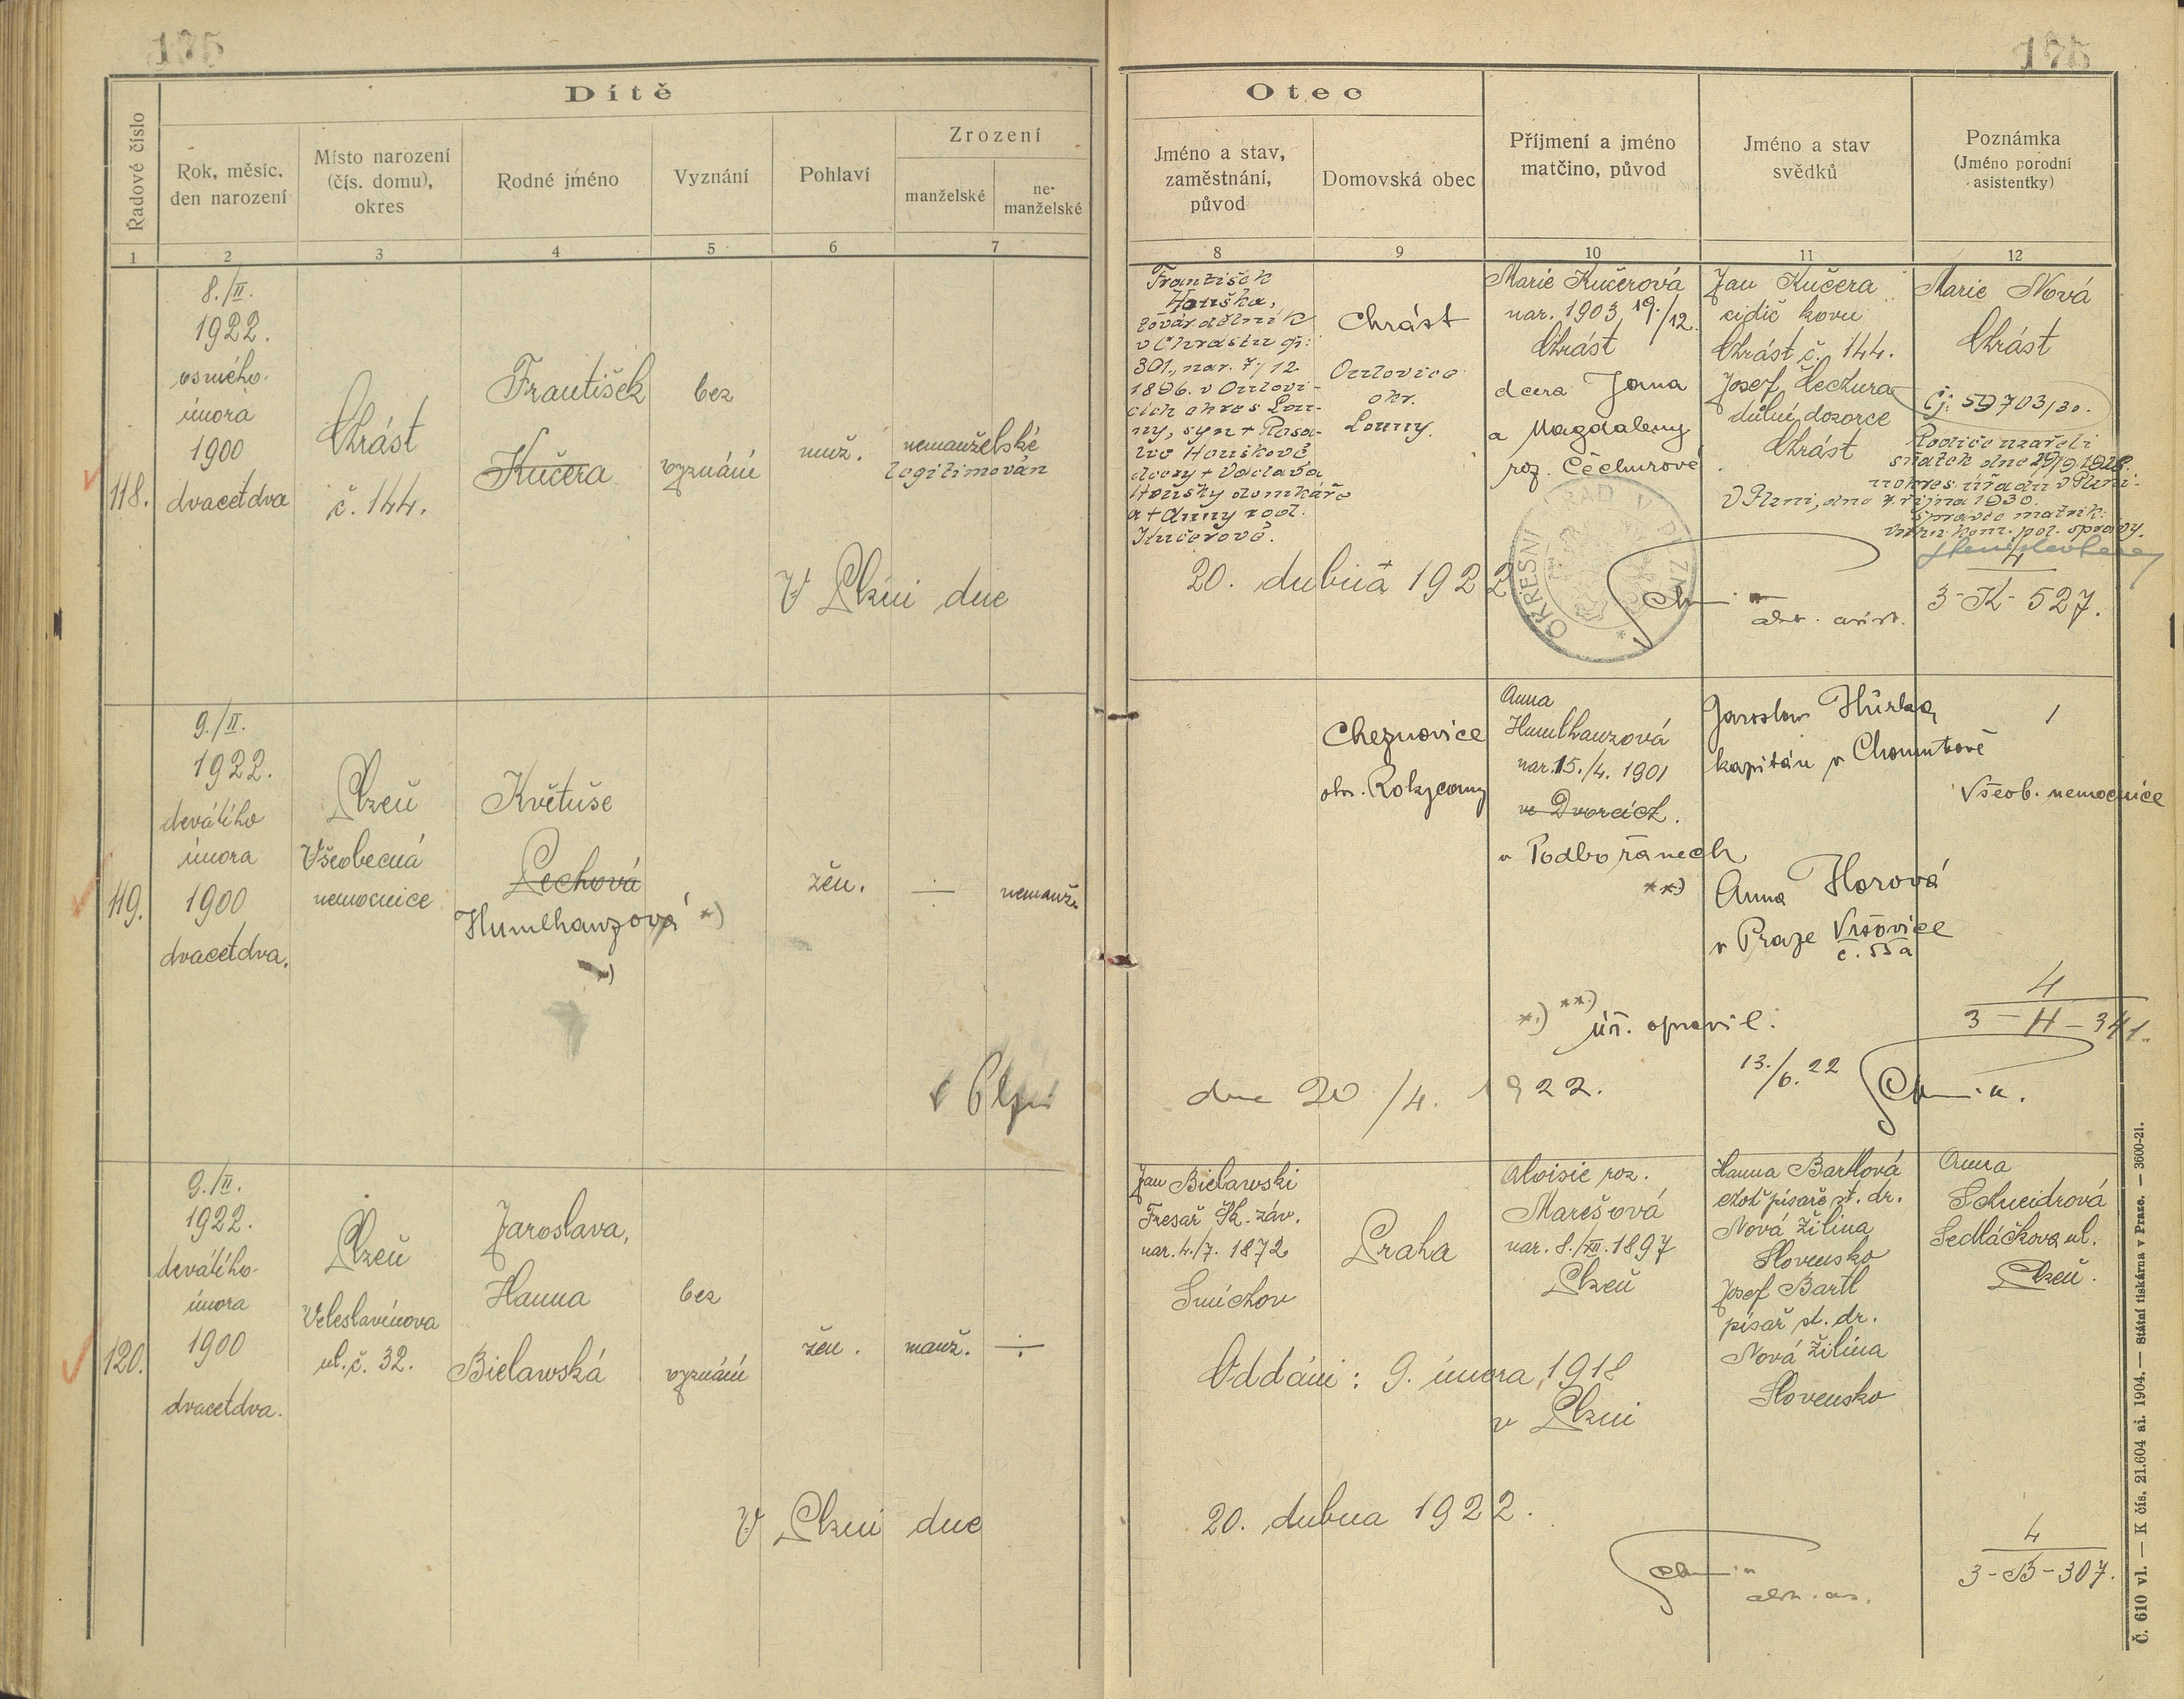 175
175
Dítě
Řadové číslo
Rok, měsíc,
den narození
Místo narození
(čís. domu),
okres
Rodné jméno
Vyznání
Pohlaví
Zrození
manželské
ne-
manželské
1
2
3
4
5
6
7
118.
8./II.
1922.
osmého
února
1900
dvacetdva
Chrást
č. 144.
František
Kučera
bez
vyznání
muž.
nemanželské
legitimován
V Plzni dne
119.
9./II.
1922.
devátého
února
1900
dvacetdva.
Plzeň
Všeobecná
nemocnice
Květuše
Pechová
Humlhanzová *)
*)
žen.
÷
nemanž.
v Plzni
120.
9./II.
1922.
devátého
února
1900
dvacetdva.
Plzeň
Veleslavínova
ul. č. 32.
Jaroslava,
Hanna
Bielawská
bez
vyznání
žen.
manž.
÷
V Plzni dne
Otec
Jméno a stav,
zaměstnání,
původ
Domovská obec
Příjmení a jméno
matčino, původ
Jméno a stav
svědků
Poznámka
(Jméno porodní
asistentky)
8
9
10
11
12
František
Houška,
továr. dělník
v Chrástu čp:
301., nar. 7./12.
1896. v
cích okres Lou-
ny, syn
Houškové
dcery + Václava
Houšky domkáře
a + Anny roz.
Kučerové.
Chrást
okr.
Louny.
Marie Kučerová
nar. 1903, 19./12.
Chrást
dcera Jana
a Magdaleny
roz. Čechurové
Jan Kučera
cidič kovu
Chrást č. 144.
Josef Čechura
důlní dozorce
Chrást
Marie Nová
Chrást
Čj: 59703/30.
Rodiče uzavřeli
sňatek dne
u okres. úřadu v Plzni.
V Plzni, dne 7. října 1930.
Správce matrik:
pol. správy.
20. dubna 1922
OKRESNÍ ÚŘAD V PLZNI
4
3-K-527.
Cheznovice
okr. Rokycany
Anna
Humlhanzová
nar. 15./4. 1901
ve Dvorcích.
v Podbořanech
**)
Jaroslav Hůrka
kapitán v Chomutově
Anna Horová
v Praze Vršovice
č. 55a
1
Všeob. nemocnice
*) **) úř. opravil.
13./6. 22
4
3-H-341.
dne 20/4. 1922.
Jan Bielawski
Fresař Šk. záv.
nar. 4./7. 1872
Smíchov
Praha
Aloisie roz.
Marešová
nar. 8./XII. 1897
Plzeň
Hanna Bartlová
choť písaře st. dr.
Nová Žilina
Slovensko
Josef Bartl
písař st. dr.
Nová Žilina
Slovensko
Anna
Schneidrová
Sedláčkova ul.
Plzeň.
Oddáni: 9. února 1918
v Plzni
20. dubna 1922.
4
3-B-307.
Č. 610 vl. — K čís. 21.604 ai. 1904. — Státní tiskárna v Praze. — 3600-21.